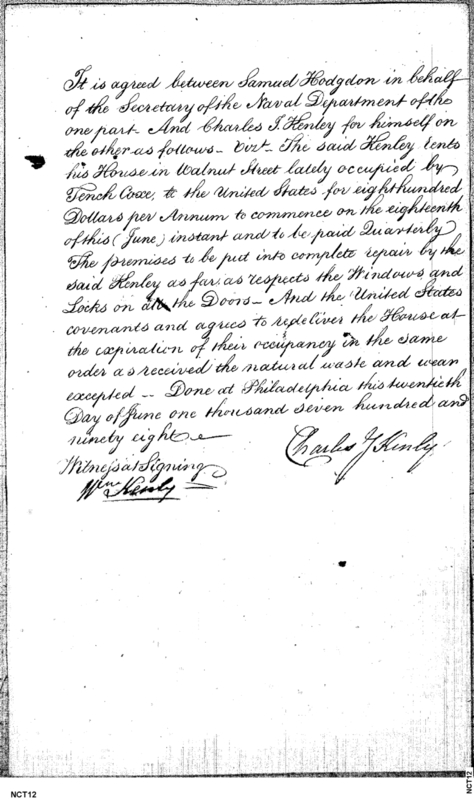 It is agreed between Samuel Hodgdon in behalf
of the Secretary of the Naval Department of the
one part - And Charles J. Henley for himself on
the other as follows - Vizt - The said Henley rents
his House in Walnut Street lately occupied by
Tench Coxe, to the United States for eight hundred
Dollars per Annum to commence on the eighteenth
of this (June) instant and to be paid Quarterly
The premises to be put into complete repair by the
said Henley as far as respects the Windows and
Locks on all the Doors - And the United States
covenants and agrees to redeliver the House at
the expiration of their occupancy in the same
order as received the natural waste and wear
excepted -- Done at Philadelphia this twentieth
Day of June one thousand seven hundred and
ninety eight
Charles J Kenly
Witness at Signing
Wm Kenly
NCT12
NCT12